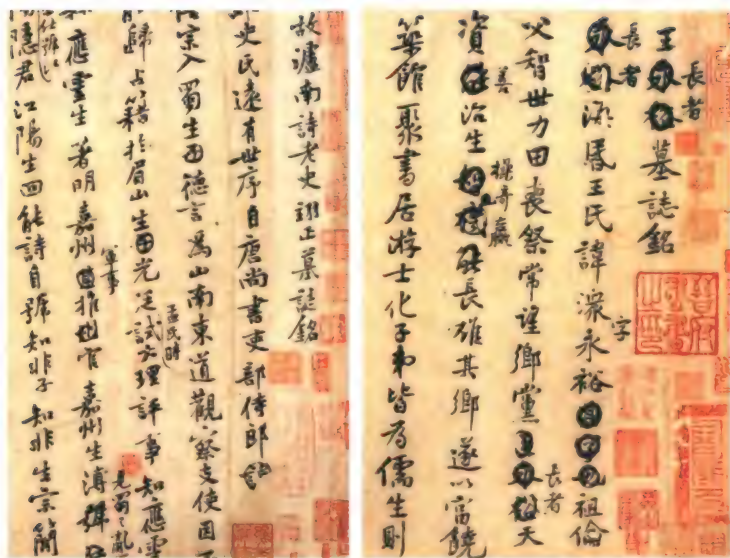 王長者墓誌銘
長者海昬王氏諱潀字永裕祖倫
父智世力田喪祭常望鄉黨長者天
資善治生操奇贏能長雄其鄉遂以富饒
築館聚書居游士化子弟皆為儒生則
故瀘南詩老史翊正墓誌銘
史氏遠有世序自唐尚書吏部侍郎
宗入蜀生德言為山南東道觀察支使因
歸占籍於眉山生光庭孟氏時試大理評事知應靈
應靈生著明嘉州軍事推官嘉州生溥見蜀之亂
隱君江陽生回能詩自號知非子知非生宗簡